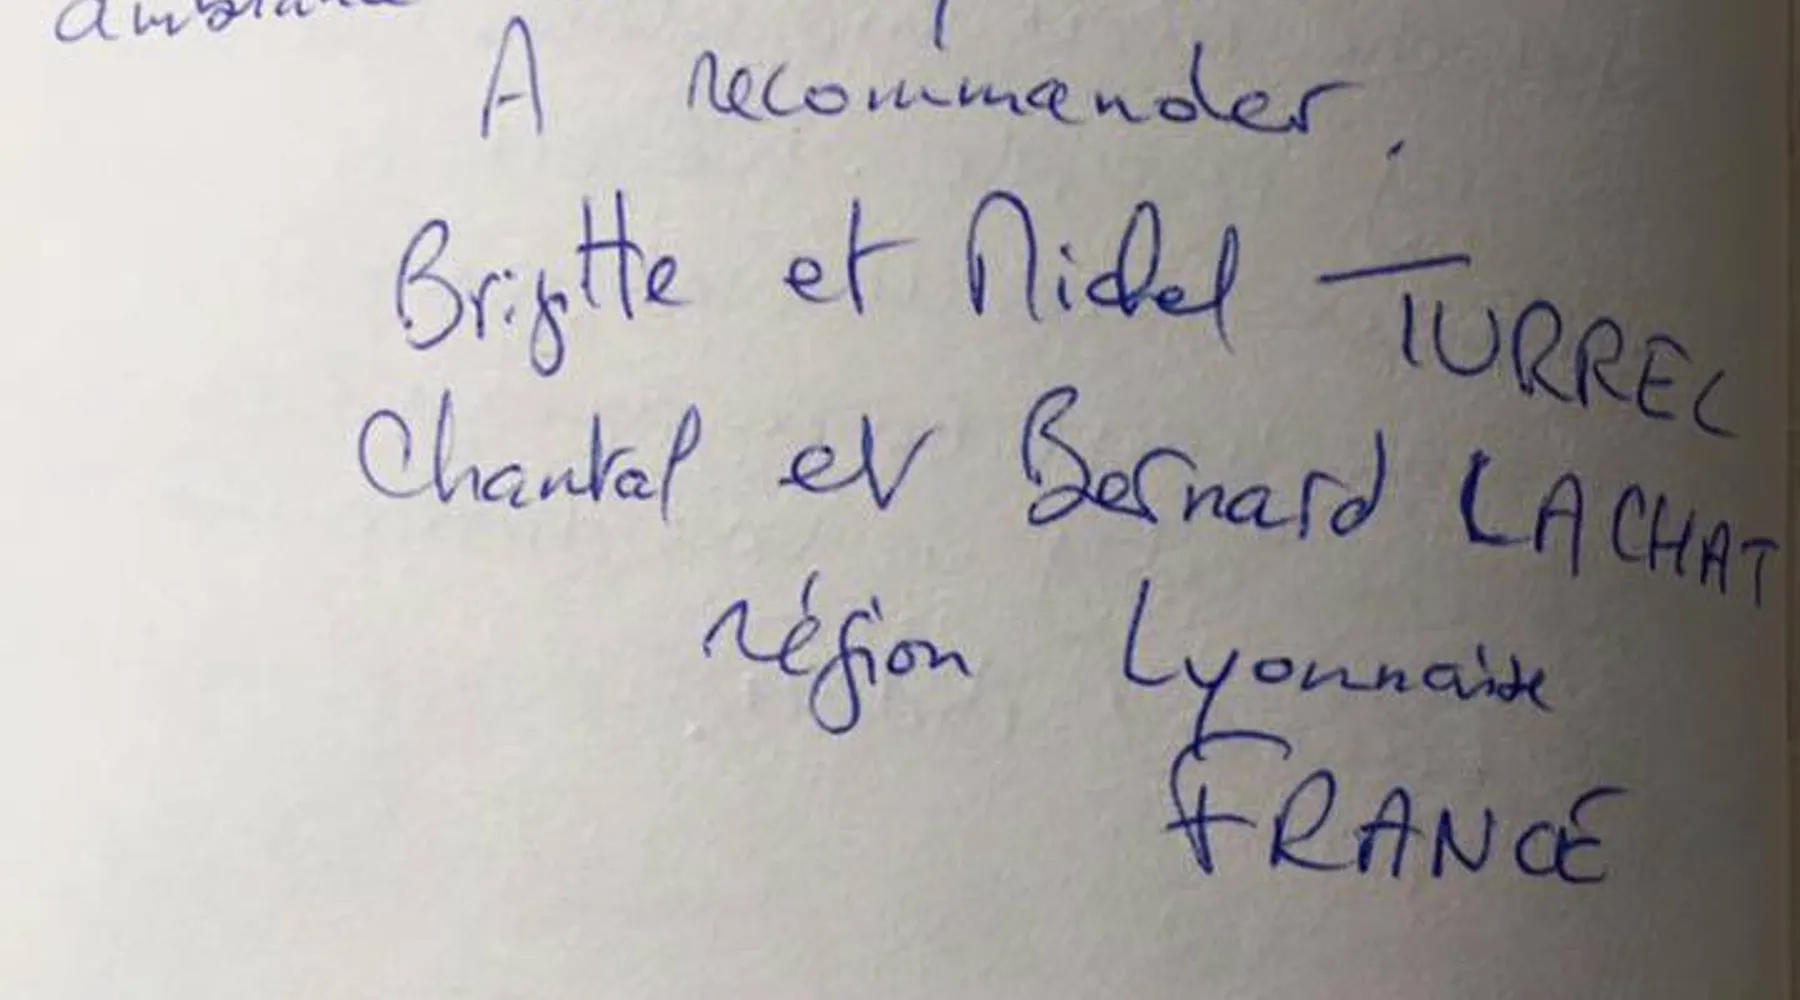 A recommander.
Brigitte et Michel TURREL
Chantal et Bernard LACHAT
région Lyonnaise
FRANCE